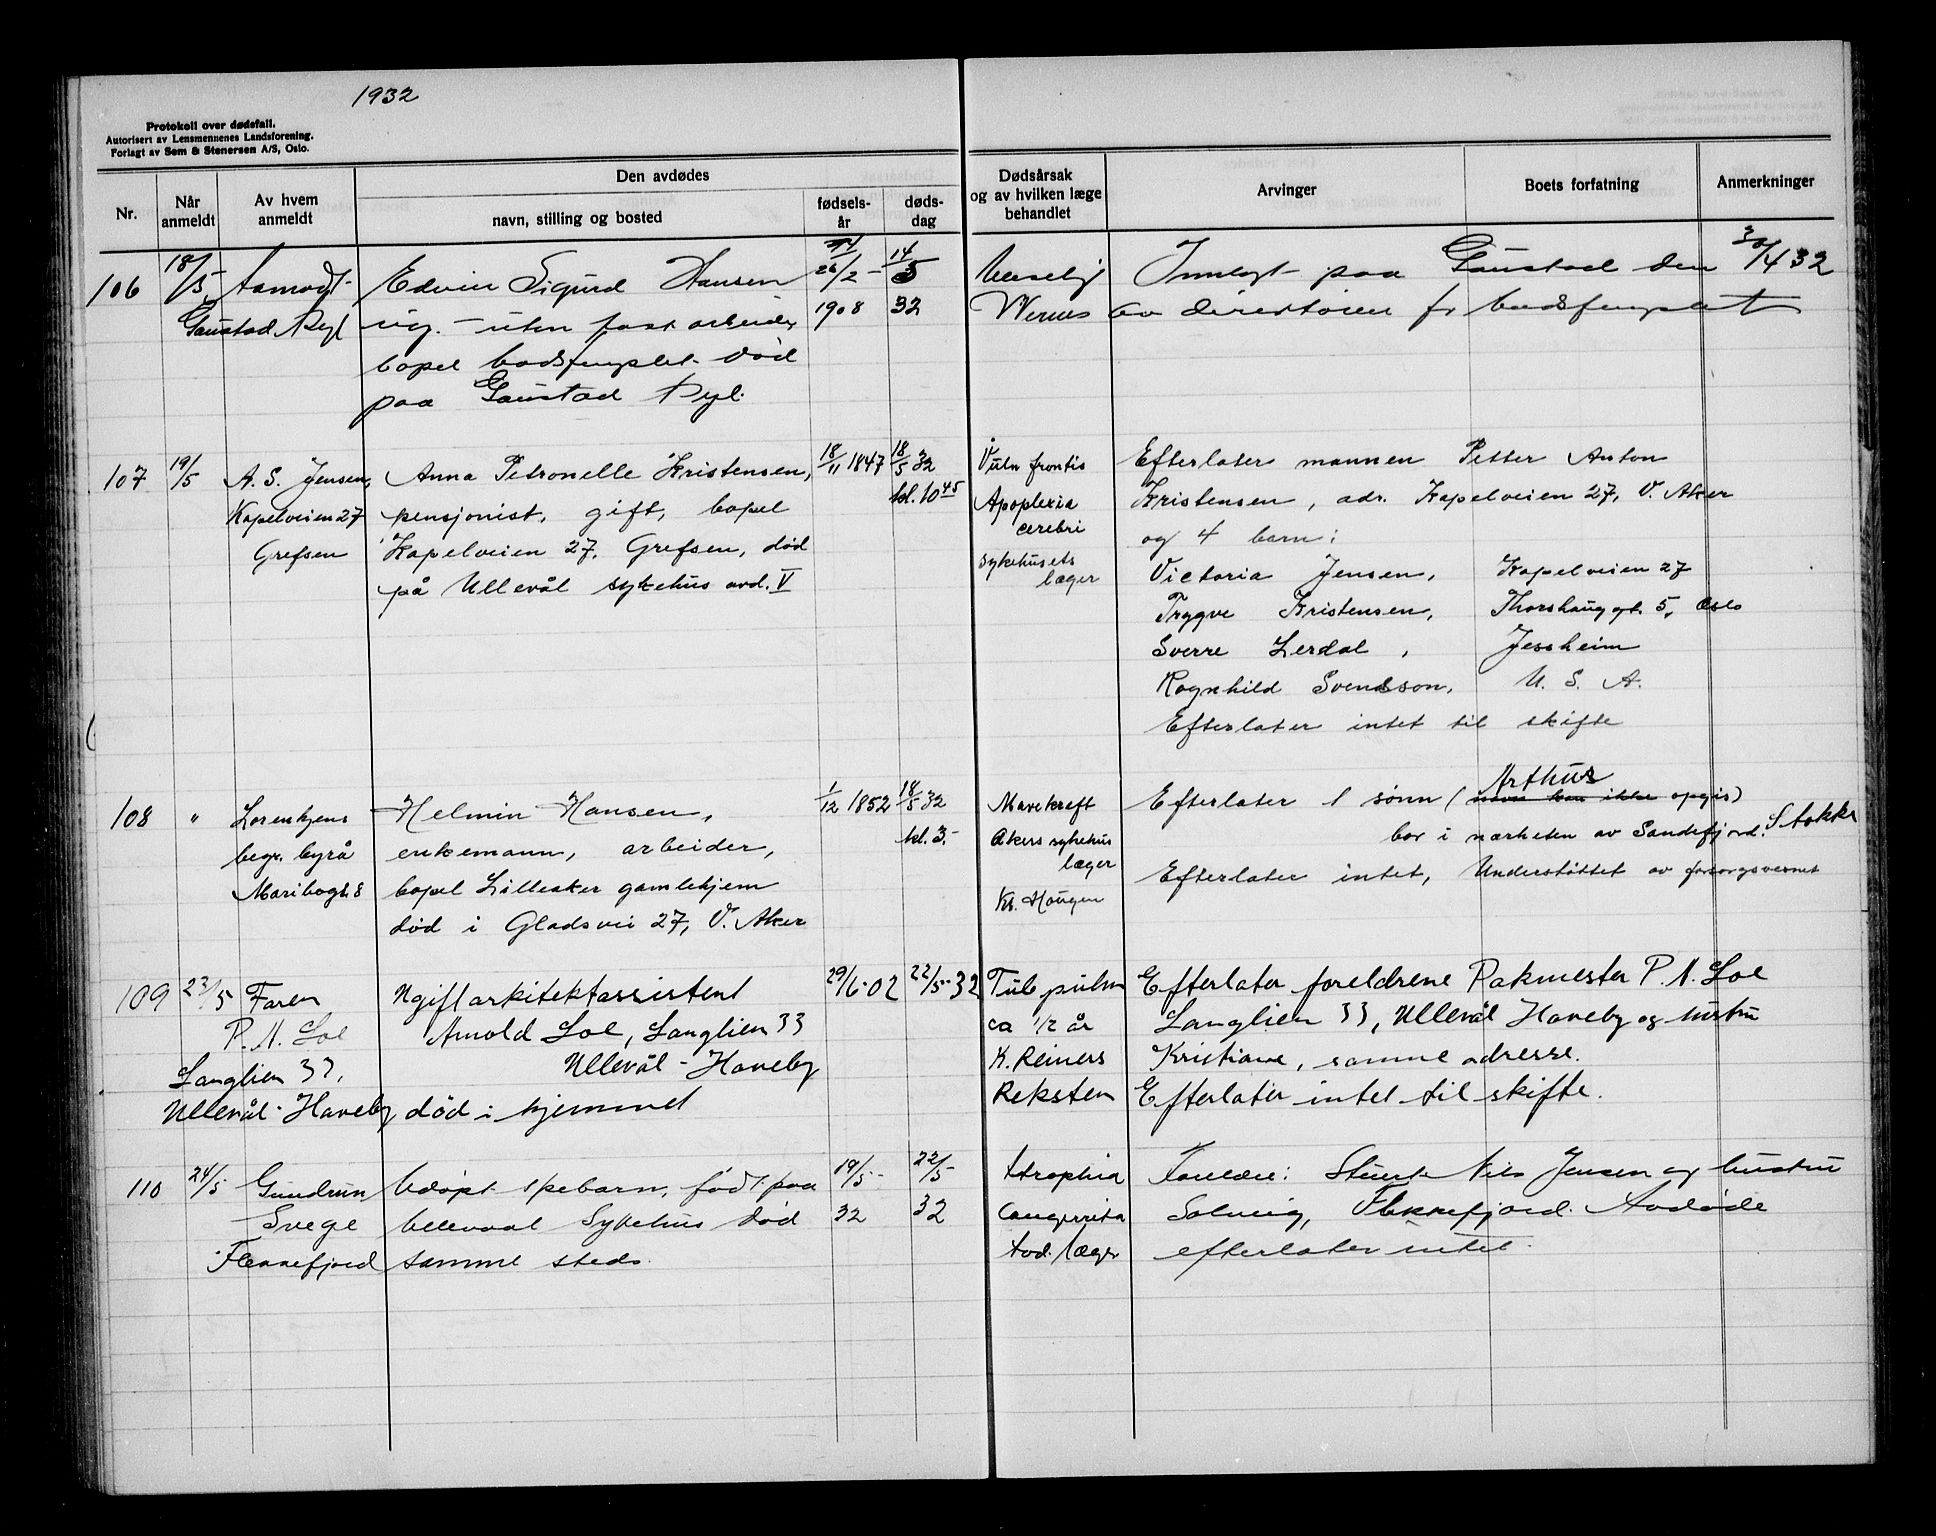 1932
Protokoll over dødsfall.
Autorisert av Lensmennenes Landsforening.
Forlagt av Sem & Stenersen A/S, Oslo.
Nr.
Når anmeldt
Av hvem anmeldt
Den avdødes
navn, stilling og bosted
fødsels-år
døds-dag
Dødsårsak og av hvilken læge behandlet
Arvinger
Boets forfatning
Anmerkninger
106
18/5
Aamodt
Gaustad Asyl
Edvin Sigurd Hansen
ug. - uten fast arbeide,
bopel bodsfengslet død
paa Gaustad Asyl.
26/2 -
1908
14
5
32
Innlagt paa Gaustad den 30/4 32
av direktören for bodsfengslet
107
19/5
A. S. Jensen,
Kapelveien 27
Grefsen
Anna Petronelle Kristensen,
pensjonist, gift, bopel
Kapelveien 27, Grefsen, død
på Ullevål sykehus avd. V
18/11 1847
18/5 32
kl. 10 45
Vuln frontis
Apoplexia
cerebri
sykehusets
læger
Efterlater mannen Petter Anton
Kristensen, adr. Kapelveien 27, V. Aker
og 4 barn:
Victoria Jensen, Kapelveien 27
Trygve Kristensen, Thorshauggt. 5, Oslo
Sverre Lerdal, Jessheim
Ragnhild Svendsson, U. S. A.
Efterlater intet til skifte
108
"
Lorentzens
begr. byrå
Maribogt. 8
Helmin Hansen,
enkemann, arbeider,
bopel Lilleaker gamlehjem
død i Gladsvei 27, V. Aker
1/12 1852
18/5 32
kl. 3.-
Mavekreft
Akers sykehus
læger
Kr. Haugen
Arthur
Efterlater 1 sønn (navn kan ikke opgis)
bor i nærheten av Sandefjord. Stokke
Efterlater intet, Understöttet av forsorgsvesnet
109
23/5
Faren
P. N. Loe
Langlien 33,
Ullevål-Haveby
Ugift arkitektassistent
Arnold Loe, Langlien 33
Ullevål-Haveby
død i hjemmet
29/6-02
22/5-32
Tub pulm
ca 1/2 år
K. Reiners
Reksten
Efterlater foreldrene Pakmester P. N. Loe
Langlien 33, Ullevål Haveby og hustru
Kristiane, samme adresse.
Efterlater intet til skifte.
110
24/5
Gundrun
Svege
Flekkefjord
Udöpt spebarn, födt paa
Ullevaal Sykehus död
samme steds.
19/5 -
32
22/5
32
Atrophia
Congenita
Avd. læger
Foreldre: Stuert Nils Jensen og hustru
Solveig, Flekkefjord. Avdöde
efterlater intet